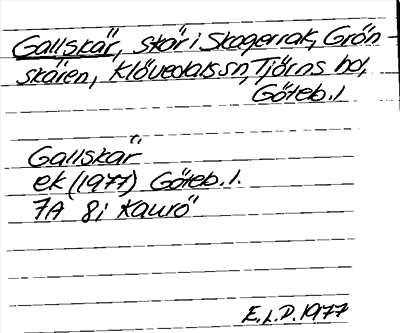 Gallskär, skär i Skagerrak, Grön-
skären, Klövedals sn, Tjörns hd,
Göteb. l
Gallskär
ek (1977) Göteb. l.
7A 8i Kaurö
E.L.D. 1977